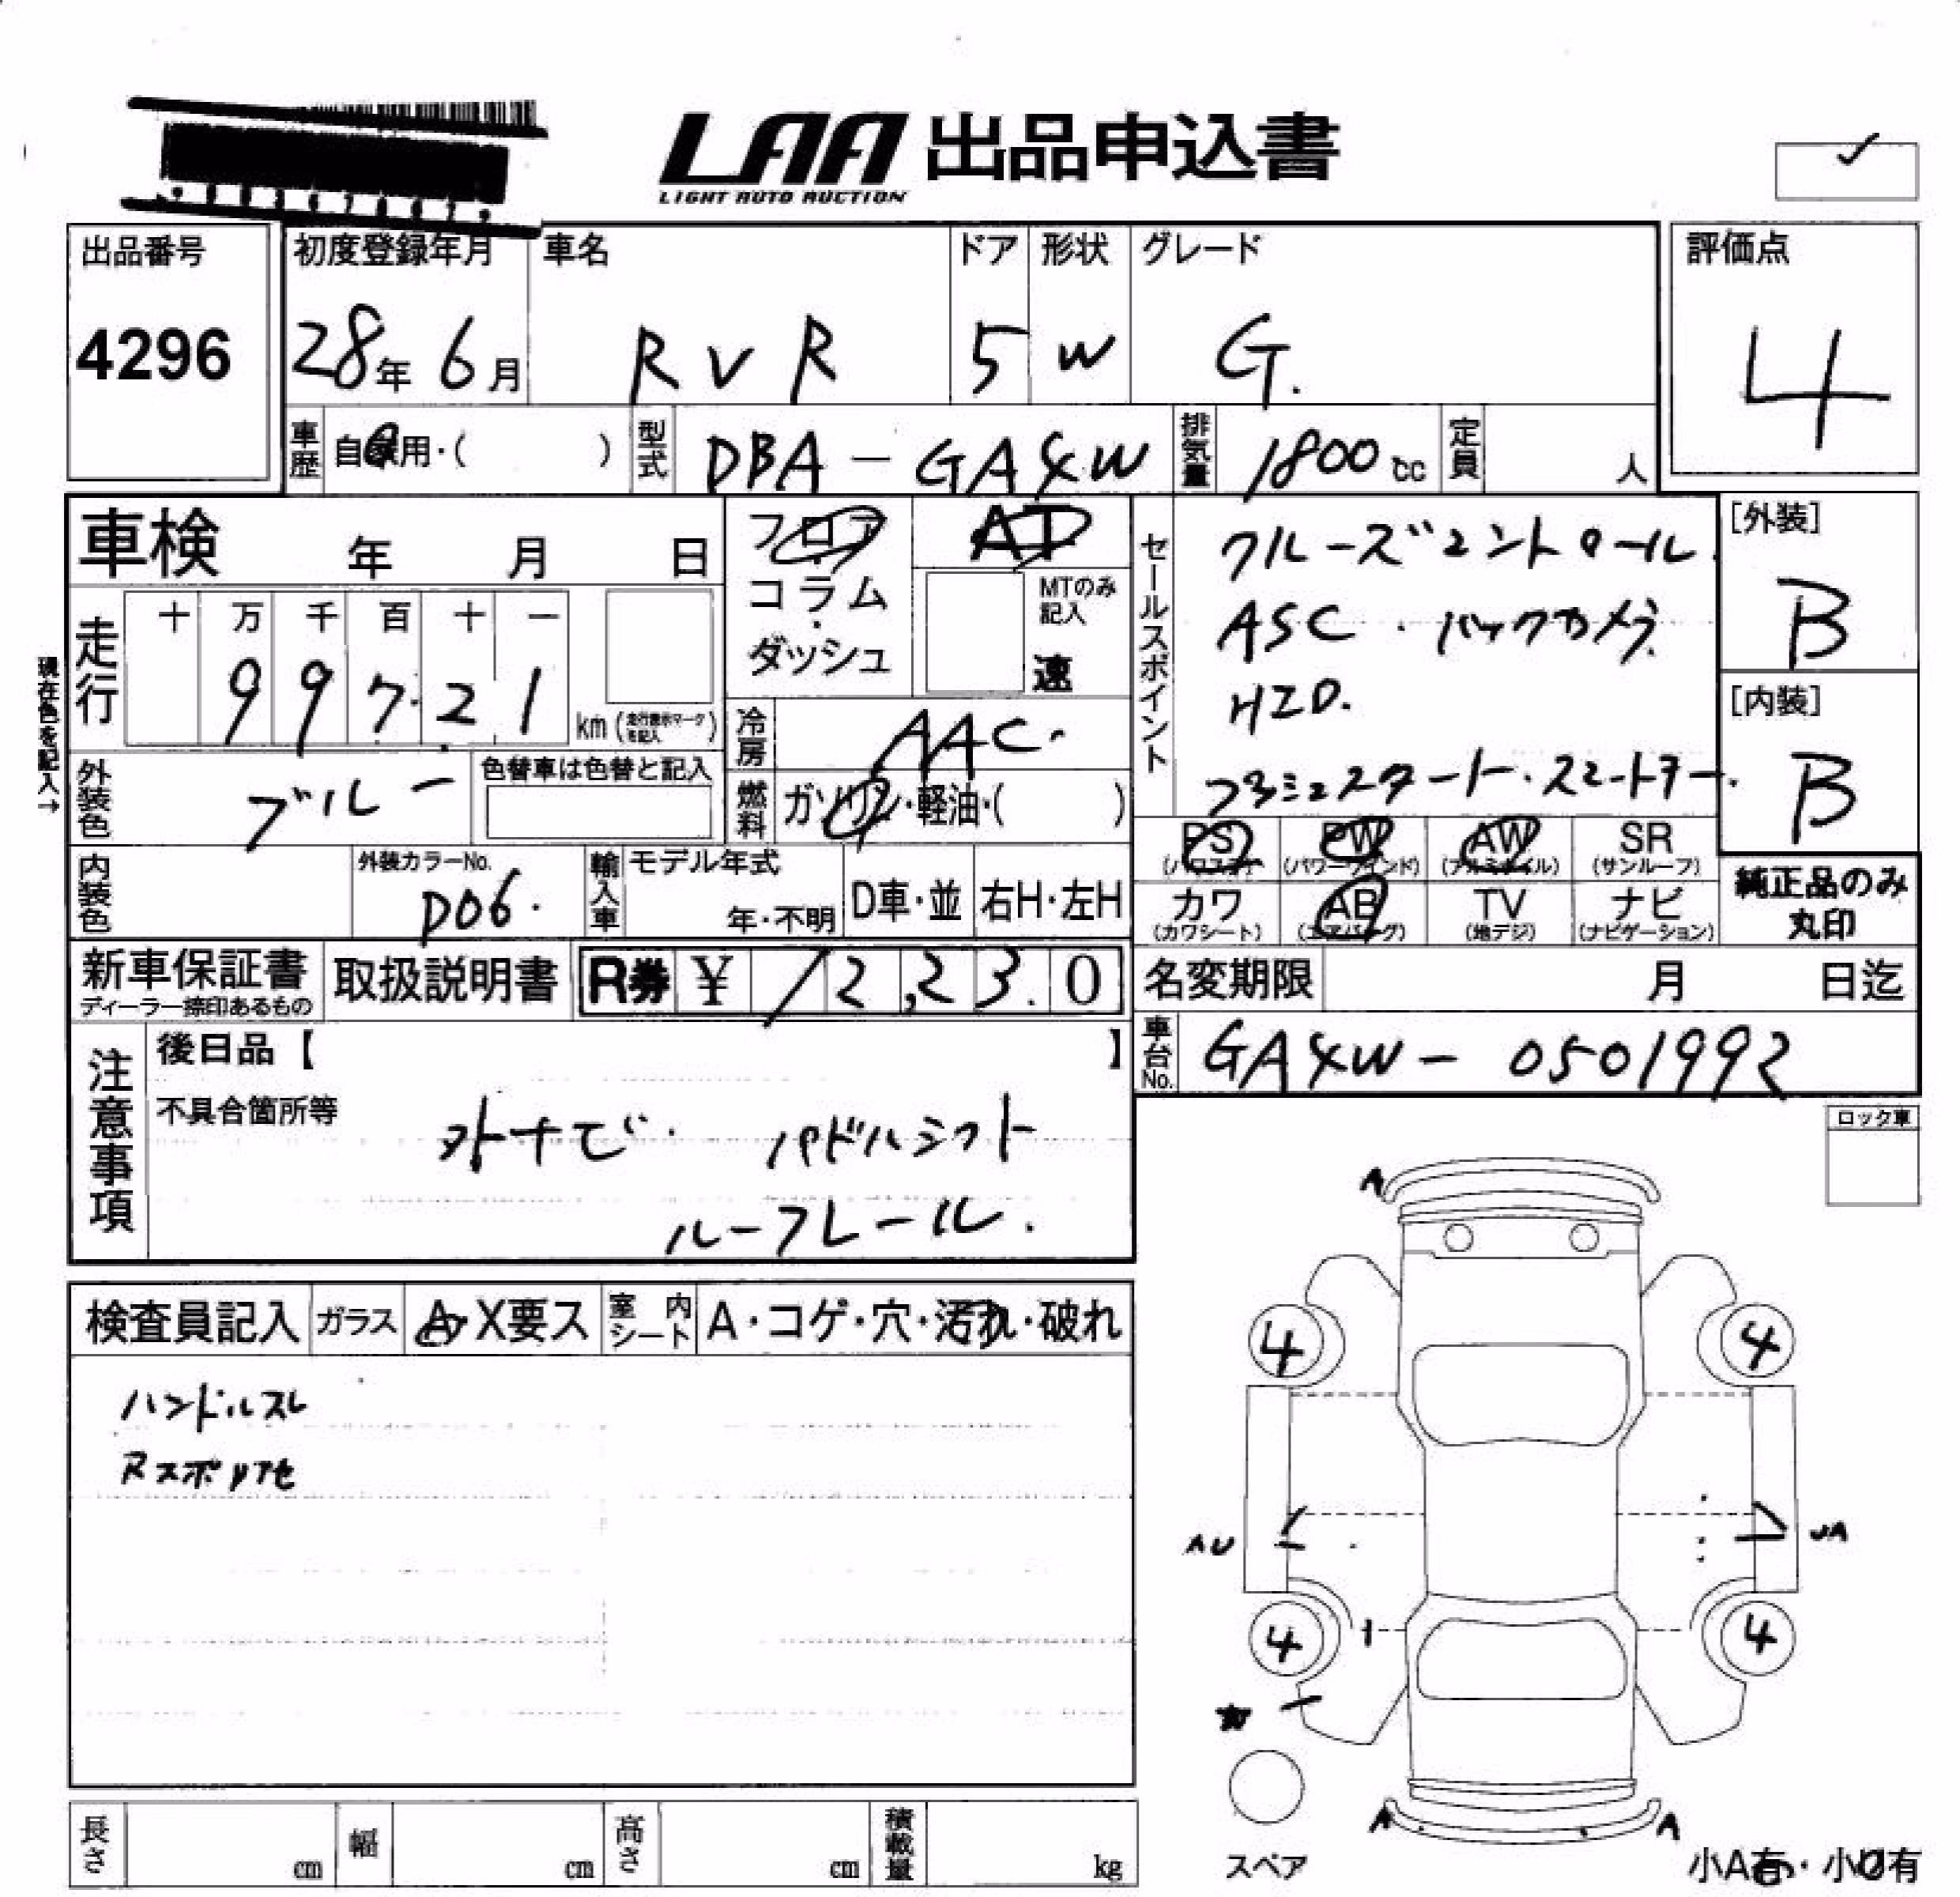 LAA 出品申込書
LIGHT AUTO AUCTION
出品番号
4296
初度登録年月
28年 6月
車名
RVR
ドア
5
形状
W
グレード
G.
評価点
4
車歴 自家用・( )
型式 DBA-GA4W
排気量 1800cc
定員 人
車検 年 月 日
走行 十 万 千 百 十 一
99721 km (走行表示マークを記入)
現在色を記入→
フロア
コラム
ダッシュ
AT
MTのみ記入
速
冷房 AAC.
燃料 ガソリン・軽油・( )
セールスポイント
クルーズコントロール.
ASC・バックカメラ.
HID.
プッシュスタート・スマートキー.
[外装]
B
[内装]
B
外装色 ブルー
色替車は色替と記入
内装色
外装カラーNo.
D06.
輸入車
モデル年式
年・不明
D車・並
右H・左H
PS (パワステ)
PW (パワーウインド)
AW (アルミホイル)
SR (サンルーフ)
カワ (カワシート)
AB (エアバッグ)
TV (地デジ)
ナビ (ナビゲーション)
純正品のみ
丸印
新車保証書
ディーラー捺印あるもの
取扱説明書
R券 ¥ 12,230
名変期限 月 日迄
車台No. GA4W-0501992
注意事項
後日品【 】
不具合箇所等
外ナビ. パドルシフト
ルーフレール.
ロック車
検査員記入
ガラス A・X要ス
室内シート A・コゲ・穴・汚れ・破れ
ハンドルスレ
Rスポイラ色
A
4
4
AU
UA
4
4
A
A
スペア
小A有・小U有
長さ cm
幅 cm
高さ cm
積載量 kg